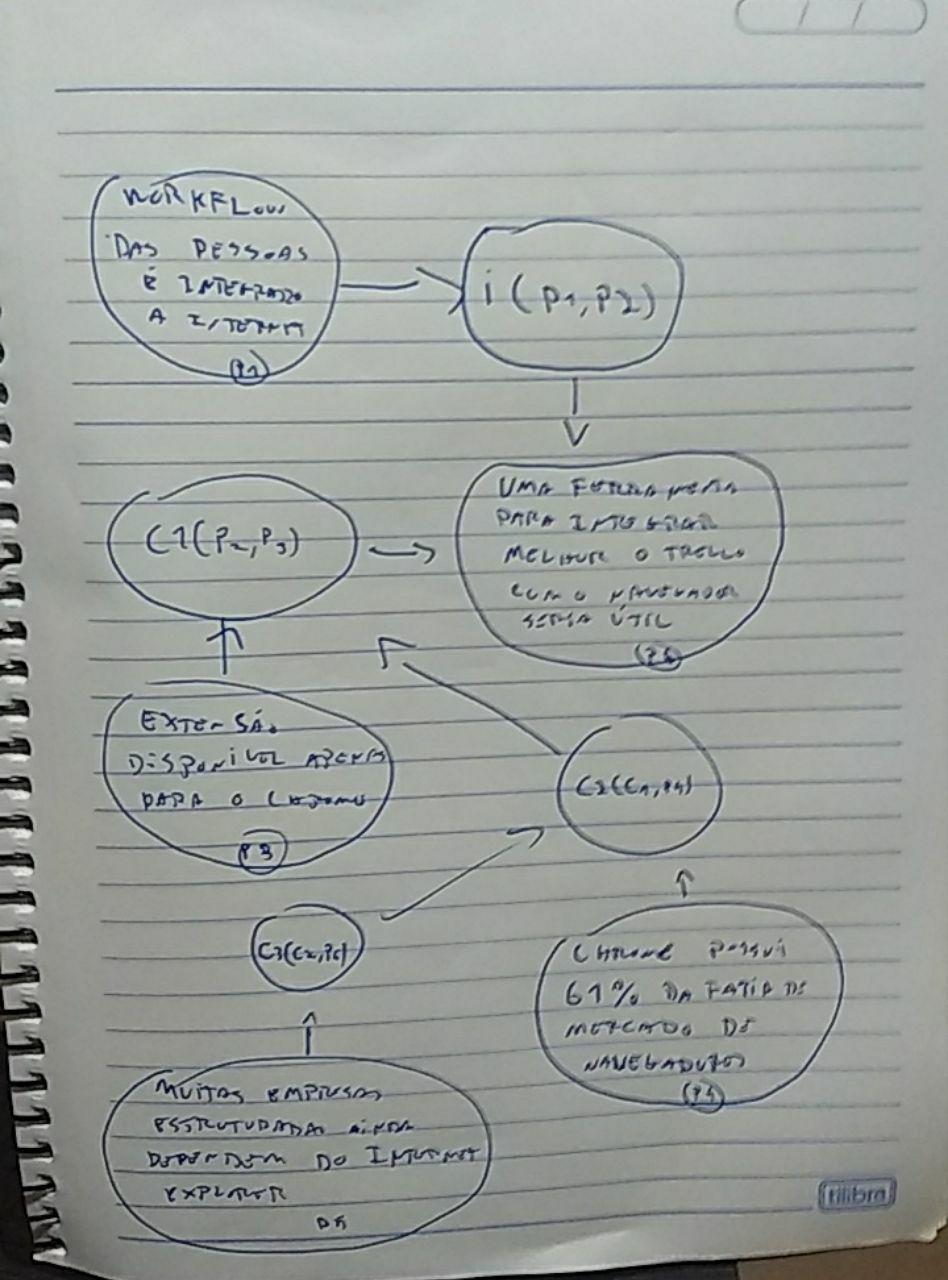 WORKFLOW
DAS PESSOAS
É INTEGRADO
A INTERNET
P1
i (P1, P2)
C1(P2, P3)
UMA FERRAMENTA
PARA INTEGRAR
MELHOR O TRELLO
COM O NAVEGADOR
SERIA ÚTIL
EXTENSÃO
DISPONÍVEL APENAS
PARA O CHROME
P3
C2(C1, P4)
C3(C2, P5)
CHROME POSSUI
61% DA FATIA DE
MERCADO DE
NAVEGADORES
P4
MUITAS EMPRESAS
ESTRUTURADAS AINDA
DEPENDEM DO INTERNET
EXPLORER
P5
tilibra